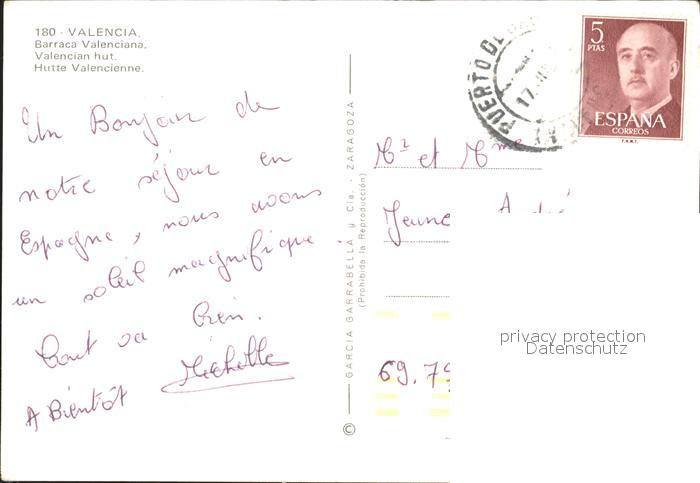 180 - VALENCIA.
Barraca Valenciana.
Valencian hut.
Hutte Valencienne.
Un Bonjour de
notre séjour en
Espagne, nous avons
un soleil magnifique
Tout va bien.
A Bientôt Michelle
GARCIA GARRABELLA y Cia. ZARAGOZA
(Prohibida la Reproducción)
©
PUERTO DE
17
5
PTAS
ESPAÑA
CORREOS
F.N.M.T.
Mr et Mme
Jeune André
69.79
privacy protection
Datenschutz